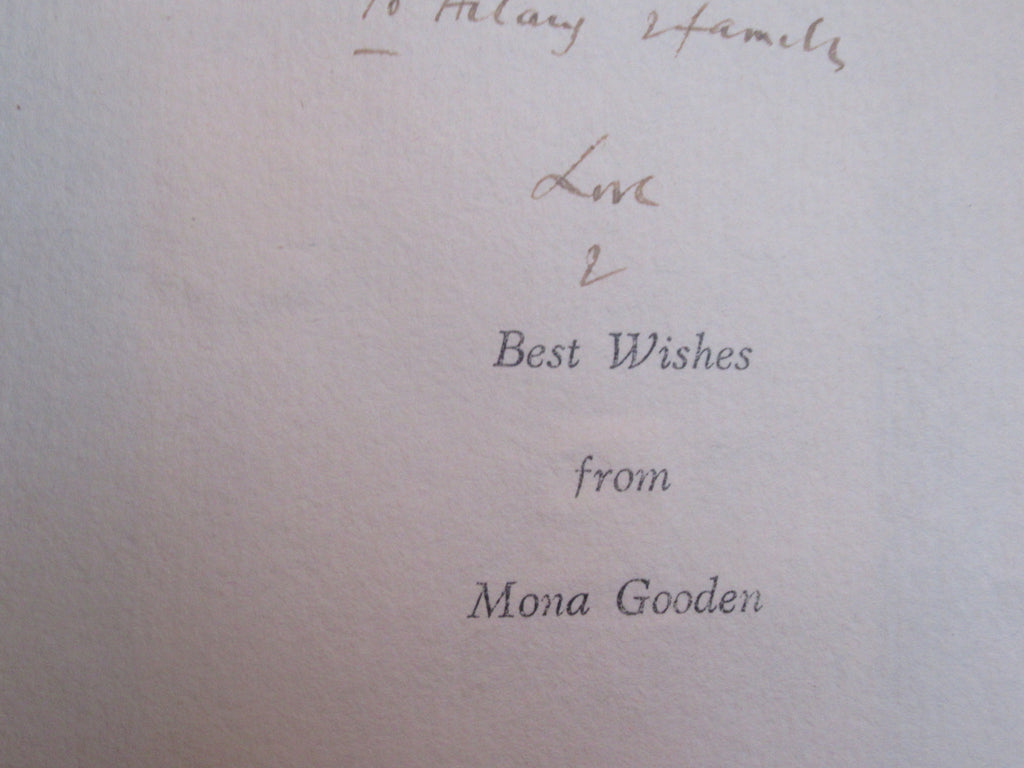 To Hilary & family
Love
&
Best Wishes
from
Mona Gooden